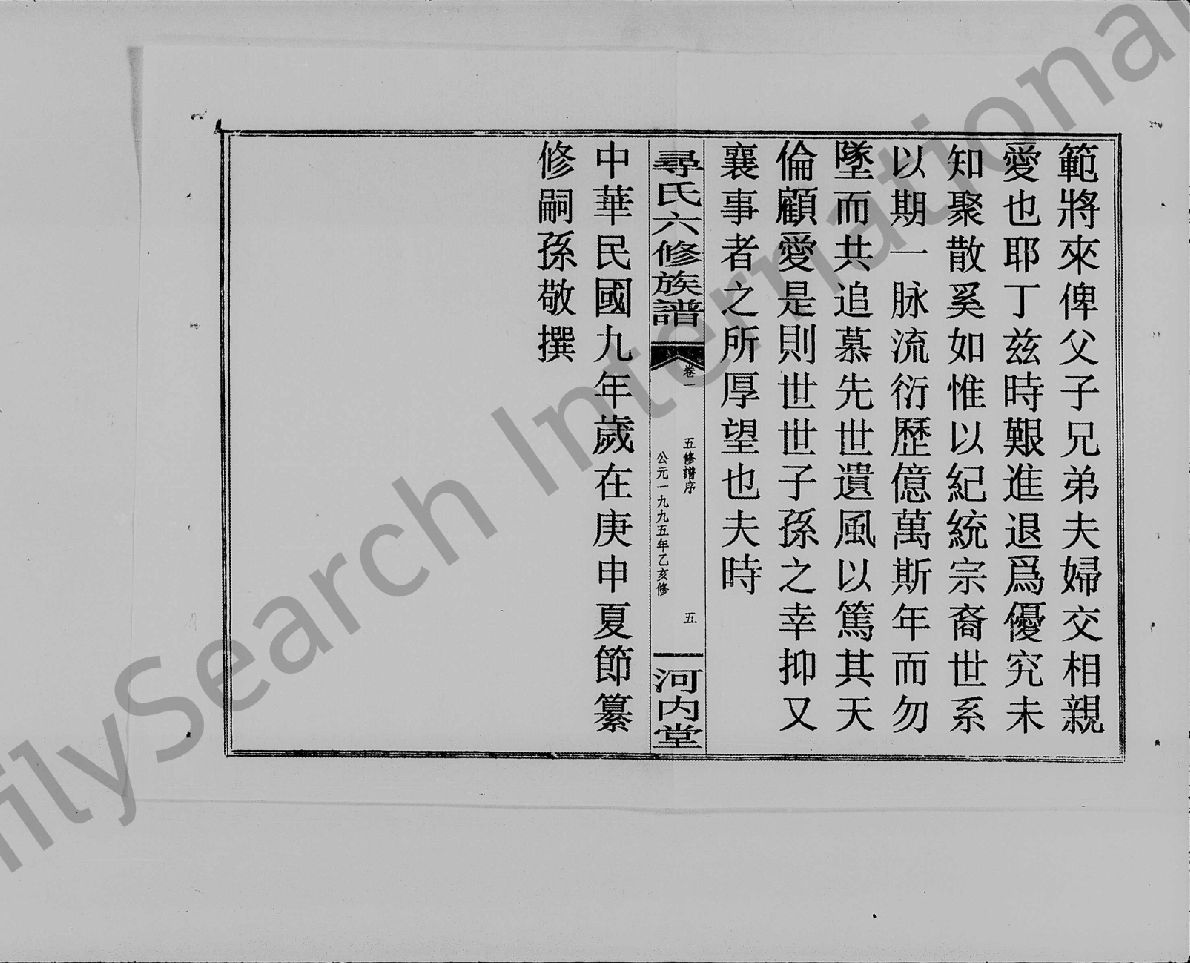 範將來俾父子兄弟夫婦交相親
愛也耶丁兹時艱進退爲優究未
知聚散奚如惟以紀統宗裔世系
以期一脉流衍歷億萬斯年而勿
墜而共追慕先世遺風以篤其天
倫顧愛是則世世子孫之幸抑又
襄事者之所厚望也夫時
尋氏六修族譜
卷一
五修譜序
五
公元一九九五年乙亥修
河内堂
中華民國九年歲在庚申夏節纂
修嗣孫敬撰
FamilySearch International